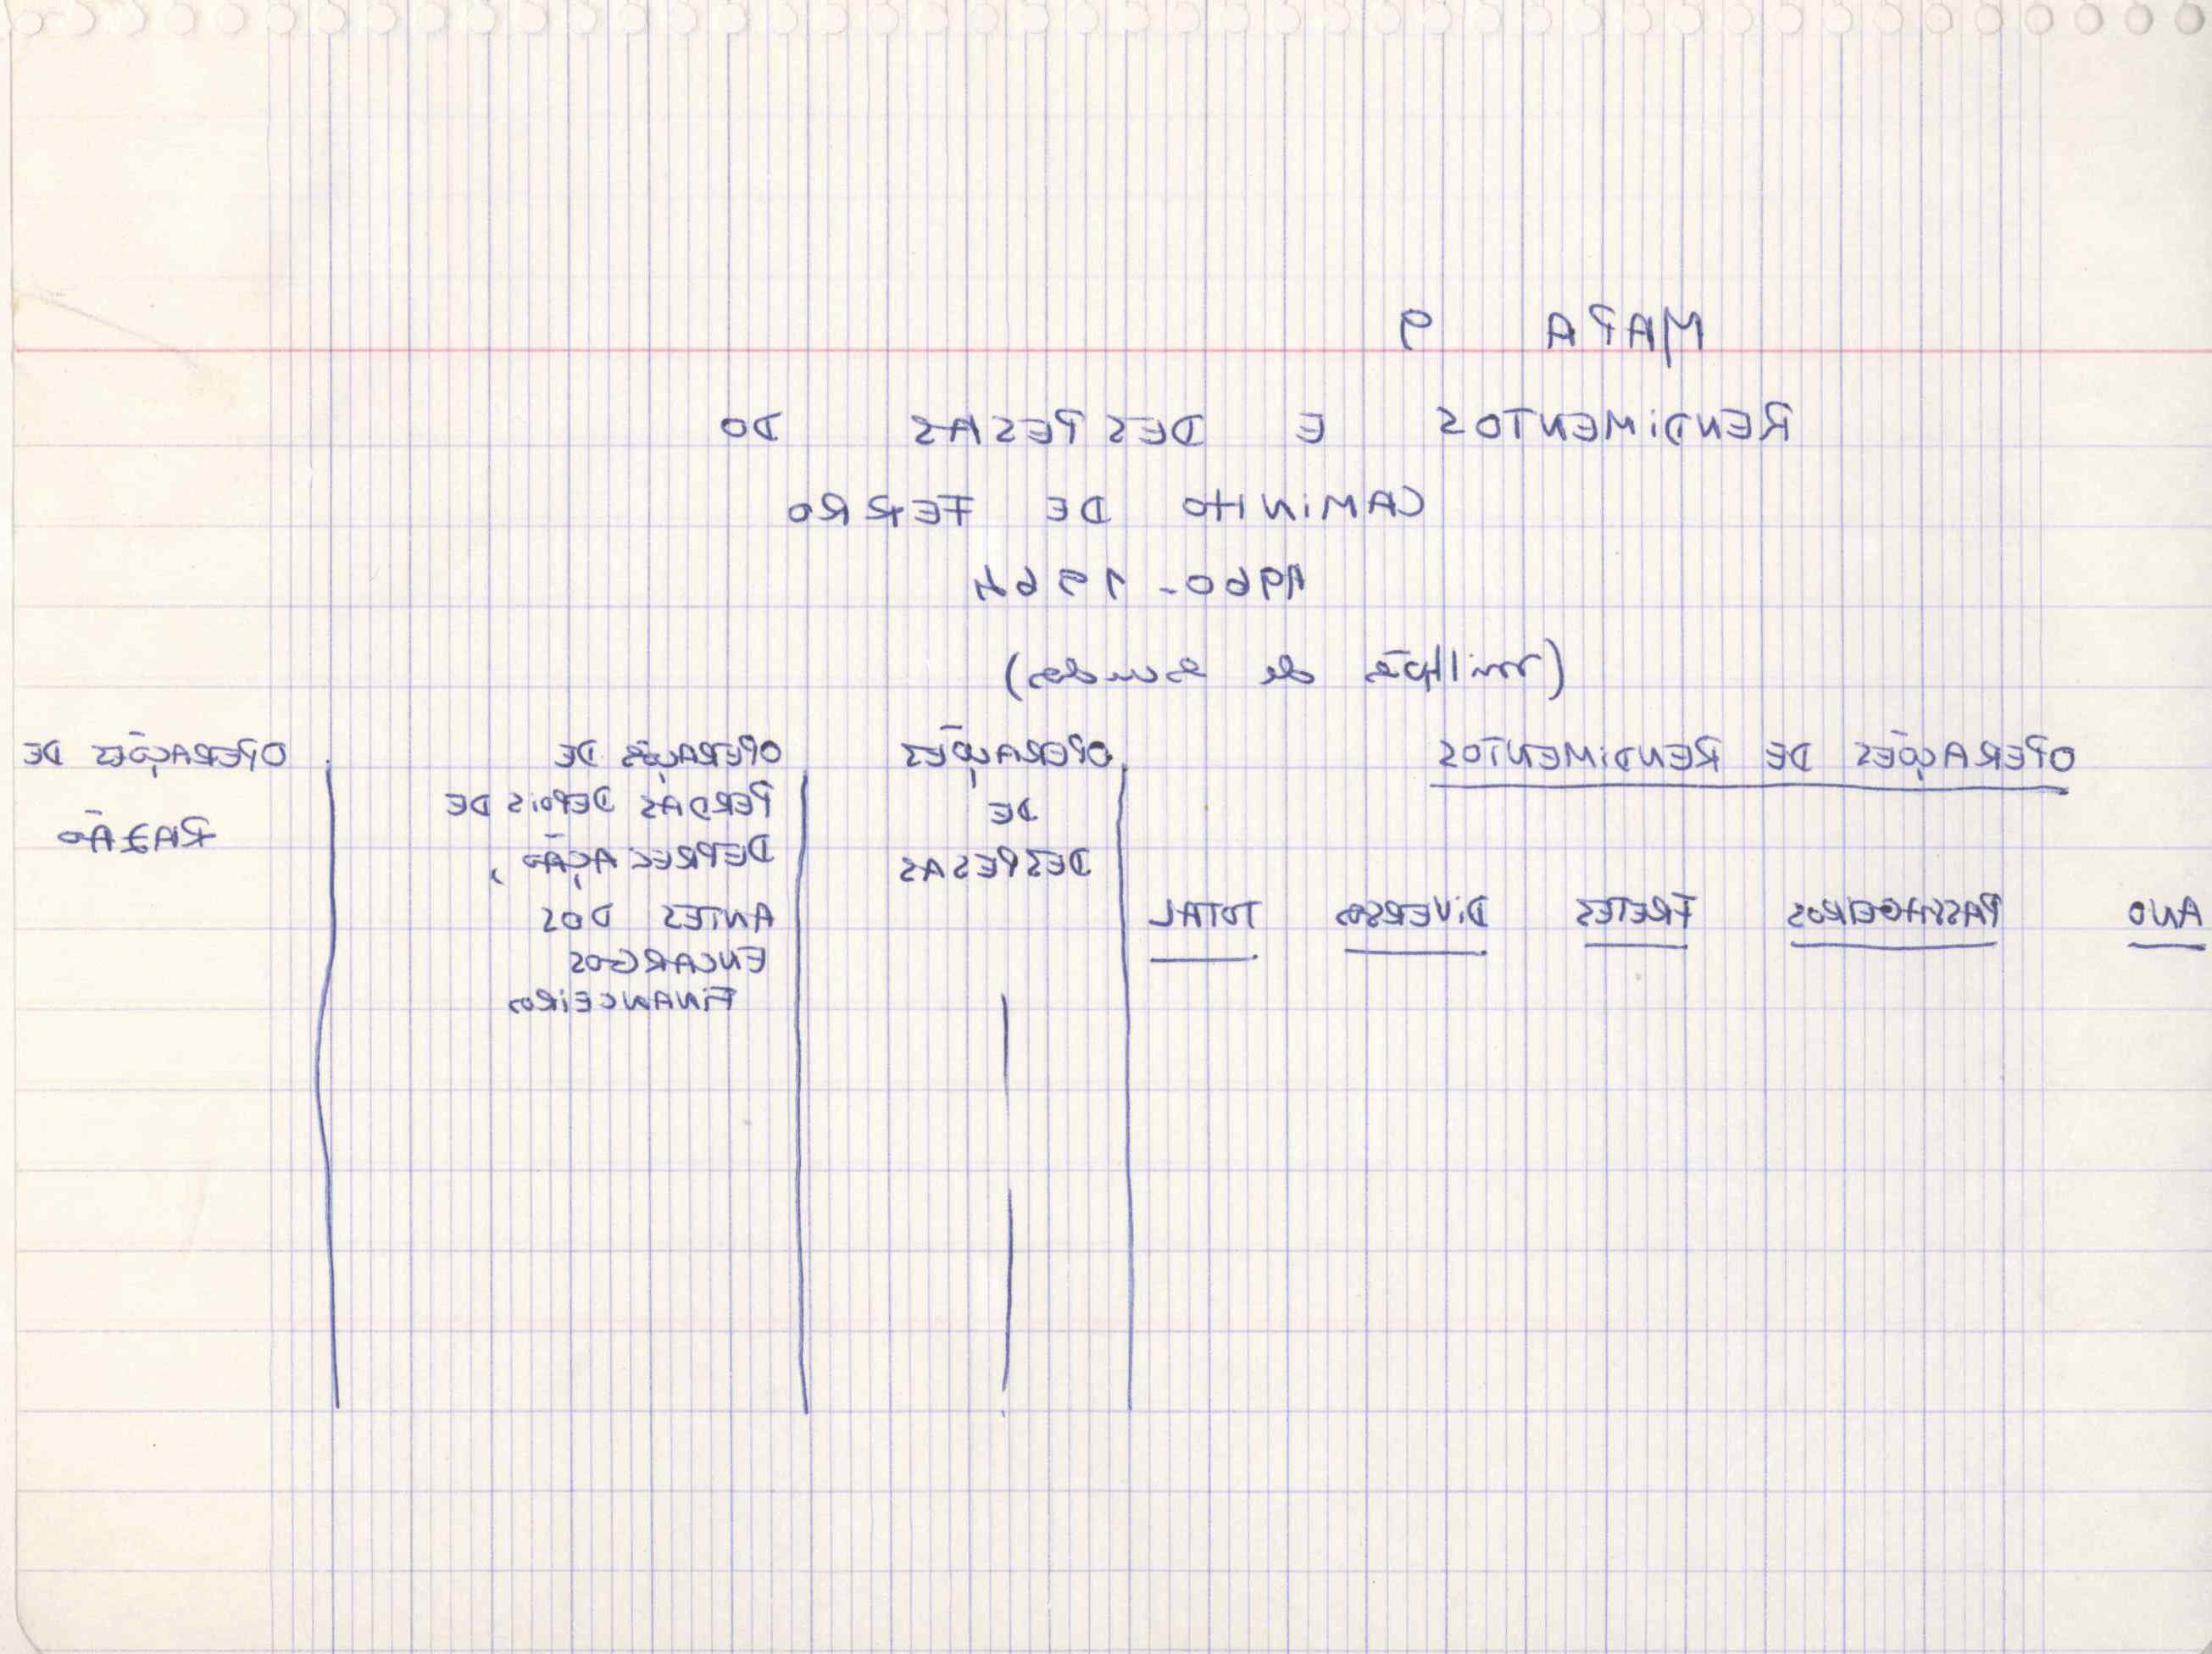 MAPA 9
RENDIMENTOS E DESPESAS DO
CAMINHO DE FERRO
1960-1964
(milhões de escudos)
OPERAÇÕES DE RENDIMENTOS
ANO PASSAGEIROS FRETES DIVERSOS TOTAL
OPERAÇÕES
DE
DESPESAS
OPERAÇÕES DE
PERDAS DEPOIS DE
DEPRECIAÇÃO,
ANTES DOS
ENCARGOS
FINANCEIROS
OPERAÇÕES DE
RAZÃO